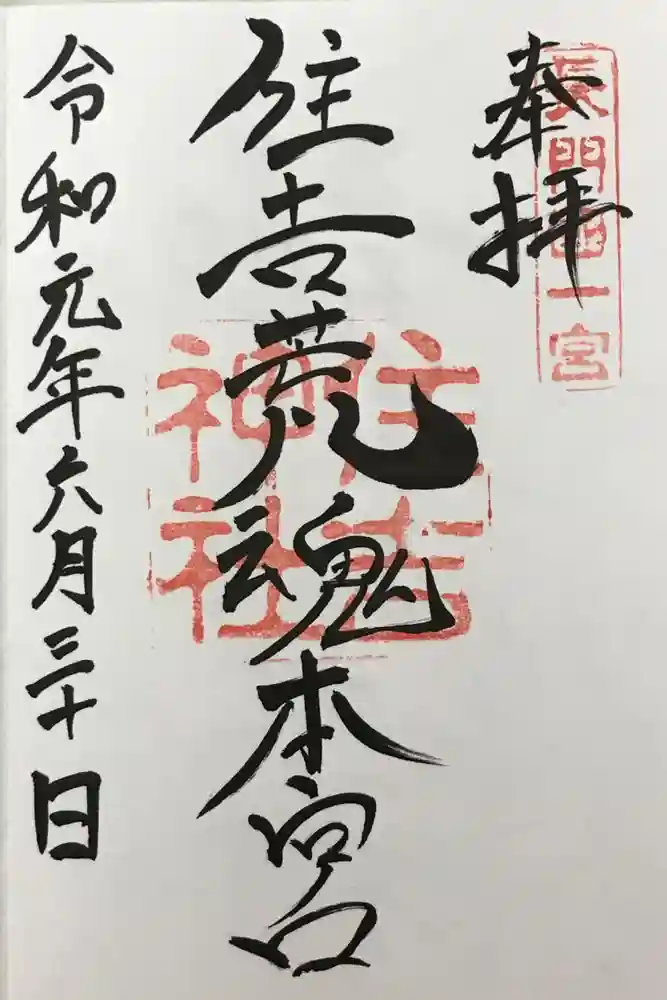 奉拝
長門國一宮
住吉荒魂本宮
住吉
神社
令和元年六月三十日